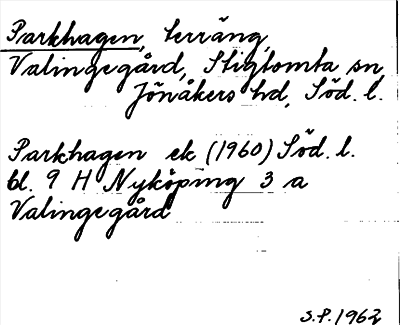 Parkhagen, terräng,
Valingegård, Stigtomta sn,
Jönåkers hd, Söd. l.
Parkhagen ek (1960) Söd. l.
bl. 9 H Nyköping 3 a
Valingegård
S.P. 1962